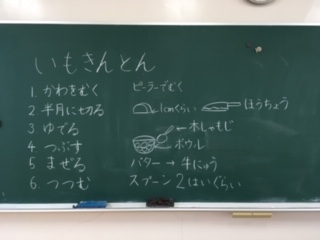 いもきんとん
1. かわをむく ピーラーでむく
2 半月に切る 1cmくらい ほうちょう
3 ゆでる ←木しゃもじ
4 つぶす ←ボウル
5 まぜる バター → 牛にゅう
6. つつむ スプーン2はいぐらい